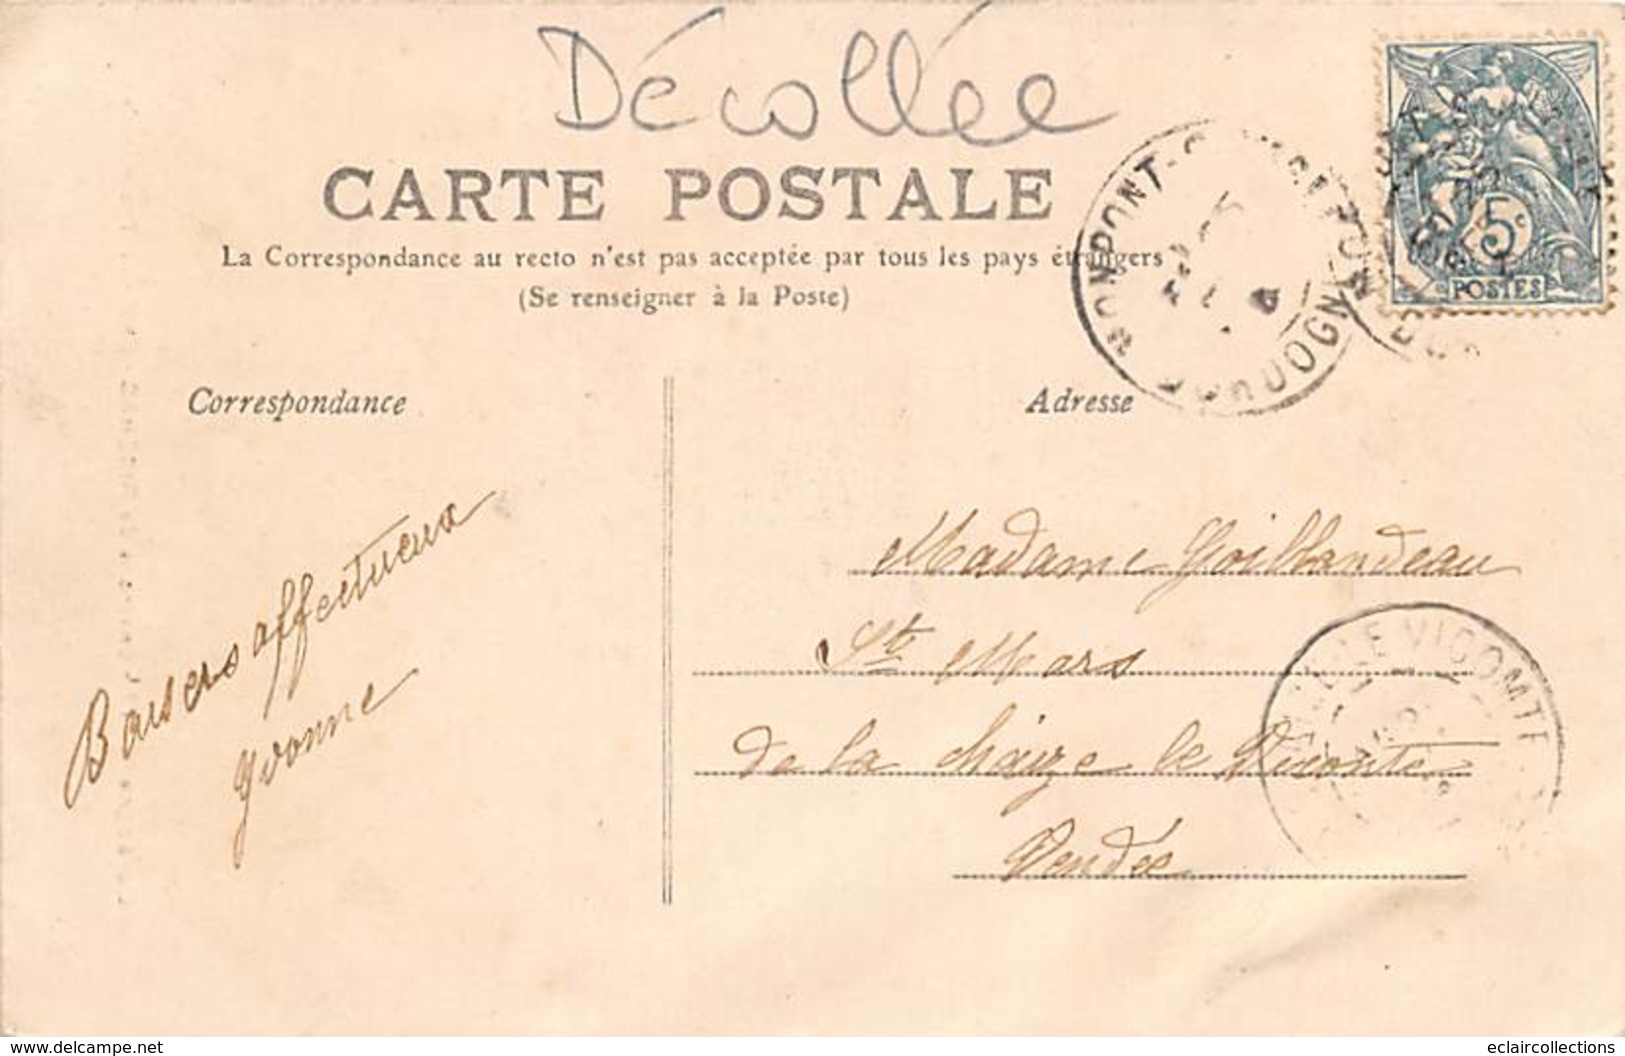 Décollée
CARTE POSTALE
La Correspondance au recto n'est pas acceptée par tous les pays étrangers
(Se renseigner à la Poste)
5c
POSTES
DORDOGNE
Correspondance
Adresse
Baisers affectueux
Yvonne
Madame Goillandeau
St Mars
de la Chaize le Vicomte
Vendée
LE VICOMTE
www.delcampe.net
eclaircollections